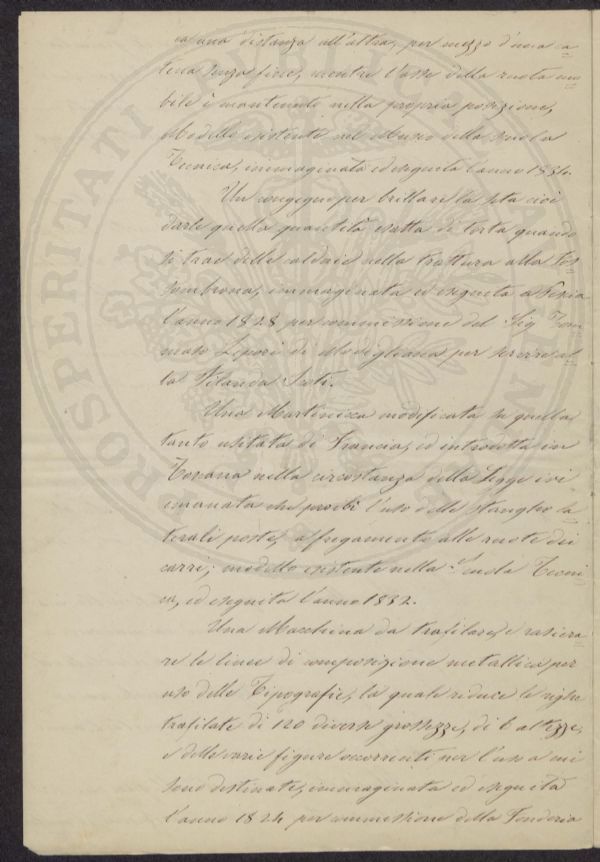 ca una distanza all'altra, per mezzo d'una ca
tena senza fine, mentre l'asse della ruota mo
bile è mantenuto nella propria posizione,
Modello esistente nel Museo della Scuola
Tecnica, immaginata ed eseguita l'anno 1834.
Un congegno per brillare la seta cioè
darle quella quantità esatta di torta quando
si trae delle caldaie nella trattura alla Fos
sombrona, immaginata ed eseguita a Pescia
l'anno 1828 per commissione del Sig Tom
maso di Modigliana per servire al
la Filanda
Una Martinicca modificata su quella
tanto usitata di Francia, ed introdotta in
Toscana nella circostanza della Legge ivi
emanata che proibì l'uso delle stanghe la
terali poste, a fregamento alle ruote dei
carri; modello esistente nella Scuola Tecni
ca, ed eseguita l'anno 1832.
Una Macchina da trafilare, e rasiera
re le linee di composizione metallica per
uso delle Tipografie, la quale riduce le righe
trafilate di 120 diverse grossezze, di 6 altezze,
e delle varie figure occorrenti per l'uso a cui
sono destinate, immaginata ed eseguita
l'anno 1824 per commissione della Fonderia
PROSPERITATI PUBLICAE